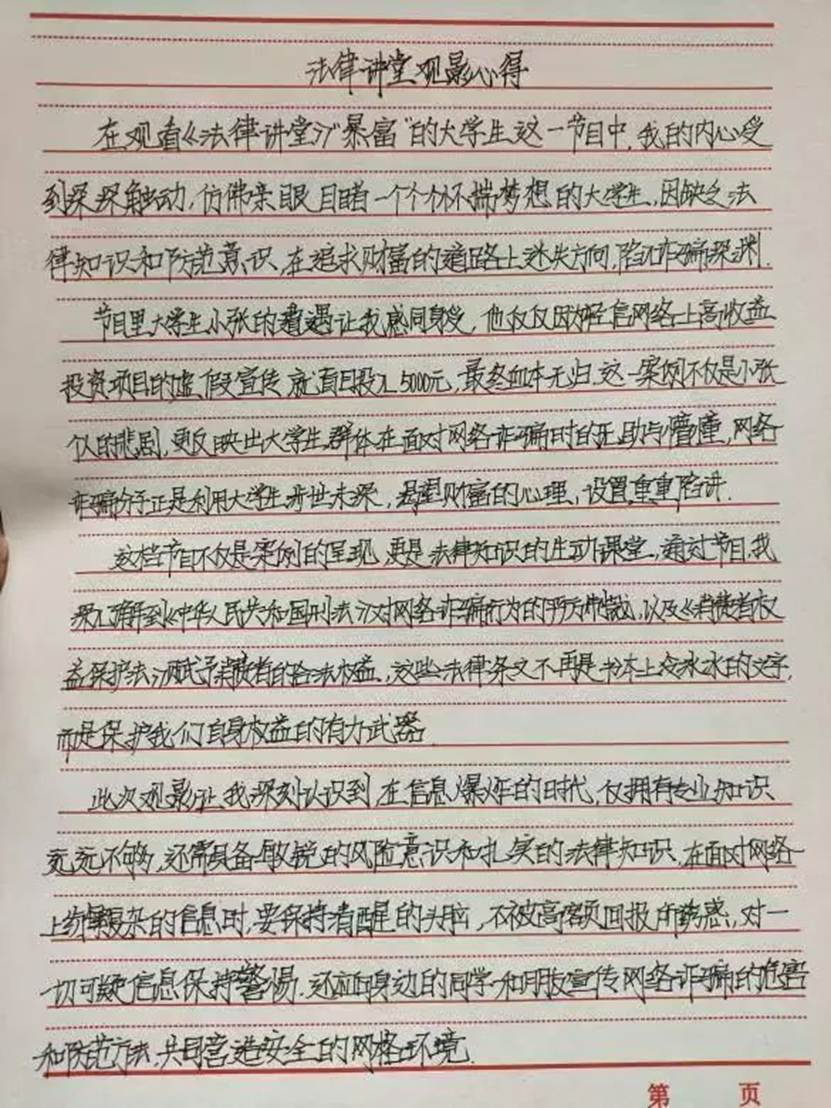 法律讲堂观影心得
在观看《法律讲堂》"暴富"的大学生这一节目中,我的内心受
到深深触动,仿佛亲眼目睹一个个怀揣梦想的大学生,因缺乏法
律知识和防范意识,在追求财富的道路上迷失方向,陷入诈骗深渊.
节目里大学生小张的遭遇让我感同身受,他仅仅因为轻信网络上高收益
投资项目的虚假宣传,就盲目投入5000元,最终血本无归.这一案例不仅是小张
个人的悲剧,更反映出大学生群体在面对网络诈骗时的无助与懵懂,网络
诈骗分子正是利用大学生涉世未深,渴望财富的心理,设置重重陷讲.
这档节目不仅是案例的呈现,更是法律知识的生动课堂.通过节目,我
深入了解到《中华人民共和国刑法》对网络诈骗行为的严厉制裁,以及《消费者权
益保护法》赋予消费者的合法权益,这些法律条文不再是书本上冷冰冰的文字,
而是保护我们自身权益的有力武器.
此次观影让我深刻认识到,在信息爆炸的时代,仅拥有专业知识
远远不够,还需具备敏锐的风险意识和扎实的法律知识.在面对网络
上纷繁复杂的信息时,要保持清醒的头脑,不被高额回报所诱惑,对一
切可疑信息保持警惕.还应向身边的同学和朋友宣传网络诈骗的危害
和防范方法,共同营造安全的网络环境.
第 页